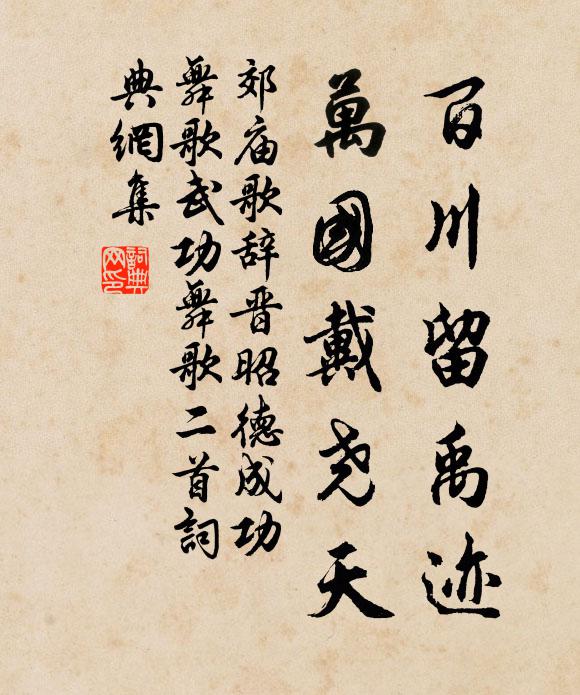 百川留禹迹
萬國戴尧天
郊庙歌辞晋昭德成功
舞歌武功舞歌二首詞
典網集
詞典
网印